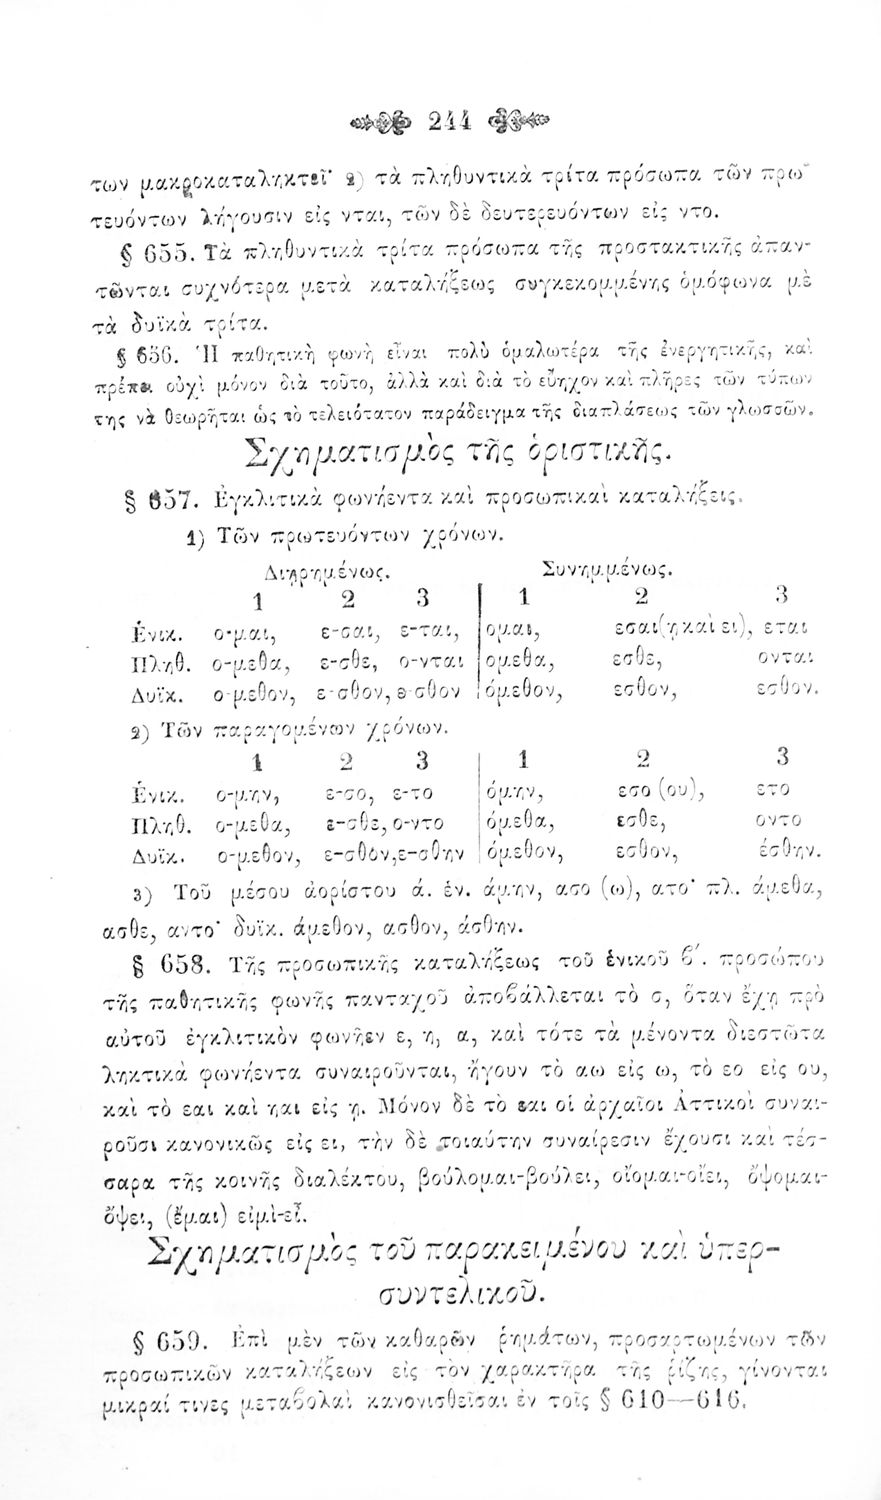 244
των μακροκαταληκτεῖ· 2) τὰ πληθυντικὰ τρίτα πρόσωπα τῶν πρω-
τευόντων λήγουσιν εἰς νται, τῶν δὲ δευτερευόντων εἰς ντο.
§ 655. Τὰ πληθυντικὰ τρίτα πρόσωπα τῆς προστακτικῆς ἀπαν-
τῶνται συχνότερα μετὰ καταλήξεως συγκεκομμένης ὁμόφωνα μὲ
τὰ δυϊκὰ τρίτα.
§ 656. Ἡ παθητικὴ φωνὴ εἶναι πολὺ ὁμαλωτέρα τῆς ἐνεργητικῆς, καὶ
πρέπει οὐχὶ μόνον διὰ τοῦτο, ἀλλὰ καὶ διὰ τὸ εὔηχον καὶ πλῆρες τῶν τύπων
της νὰ θεωρῆται ὡς τὸ τελειότατον παράδειγμα τῆς διαπλάσεως τῶν γλωσσῶν.
Σχηματισμὸς τῆς ὁριστικῆς.
§ 657. Ἐγκλιτικὰ φωνήεντα καὶ προσωπικαὶ καταλήξεις.
1) Τῶν πρωτευόντων χρόνων.
Διῃρημένως. Συνημμένως.
1 2 3 1 2 3
Ἑνικ. ο-μαι, ε-σαι, ε-ται, ομαι, εσαι(ῃ καὶ ει), εται
Πληθ. ο-μεθα, ε-σθε, ο-νται ομεθα, εσθε, ονται
Δυϊκ. ο-μεθον, ε-σθον, ε-σθον όμεθον, εσθον, εσθον.
2) Τῶν παραγομένων χρόνων.
1 2 3 1 2 3
Ἑνικ. ο-μην, ε-σο, ε-το όμην, εσο (ου), ετο
Πληθ. ο-μεθα, ε-σθε, ο-ντο όμεθα, εσθε, οντο
Δυϊκ. ο-μεθον, ε-σθον, ε-σθην όμεθον, εσθον, έσθην.
3) Τοῦ μέσου ἀορίστου ά. ἑν. άμην, ασο (ω), ατο· πλ. άμεθα,
ασθε, αντο· δυϊκ. άμεθον, ασθον, άσθην.
§ 658. Τῆς προσωπικῆς καταλήξεως τοῦ ἑνικοῦ β΄. προσώπου
τῆς παθητικῆς φωνῆς πανταχοῦ ἀποβάλλεται τὸ σ, ὅταν ἔχῃ πρὸ
αὐτοῦ ἐγκλιτικὸν φωνῆεν ε, η, α, καὶ τότε τὰ μένοντα διεστῶτα
ληκτικὰ φωνήεντα συναιροῦνται, ἤγουν τὸ αω εἰς ω, τὸ εο εἰς ου,
καὶ τὸ εαι καὶ ηαι εἰς ῃ. Μόνον δὲ τὸ εαι οἱ ἀρχαῖοι Ἀττικοὶ συναι-
ροῦσι κανονικῶς εἰς ει, τὴν δὲ τοιαύτην συναίρεσιν ἔχουσι καὶ τέσ-
σαρα τῆς κοινῆς διαλέκτου, βούλομαι-βούλει, οἴομαι-οἴει, ὄψομαι-
ὄψει, (ἔμαι) εἰμὶ-εἶ.
Σχηματισμὸς τοῦ παρακειμένου καὶ ὑπερ-
συντελικοῦ.
§ 659. Ἐπὶ μὲν τῶν καθαρῶν ῥημάτων, προσαρτωμένων τῶν
προσωπικῶν καταλήξεων εἰς τὸν χαρακτῆρα τῆς ῥίζης, γίνονται
μικραί τινες μεταβολαὶ κανονισθεῖσαι ἐν τοῖς § 610—616.